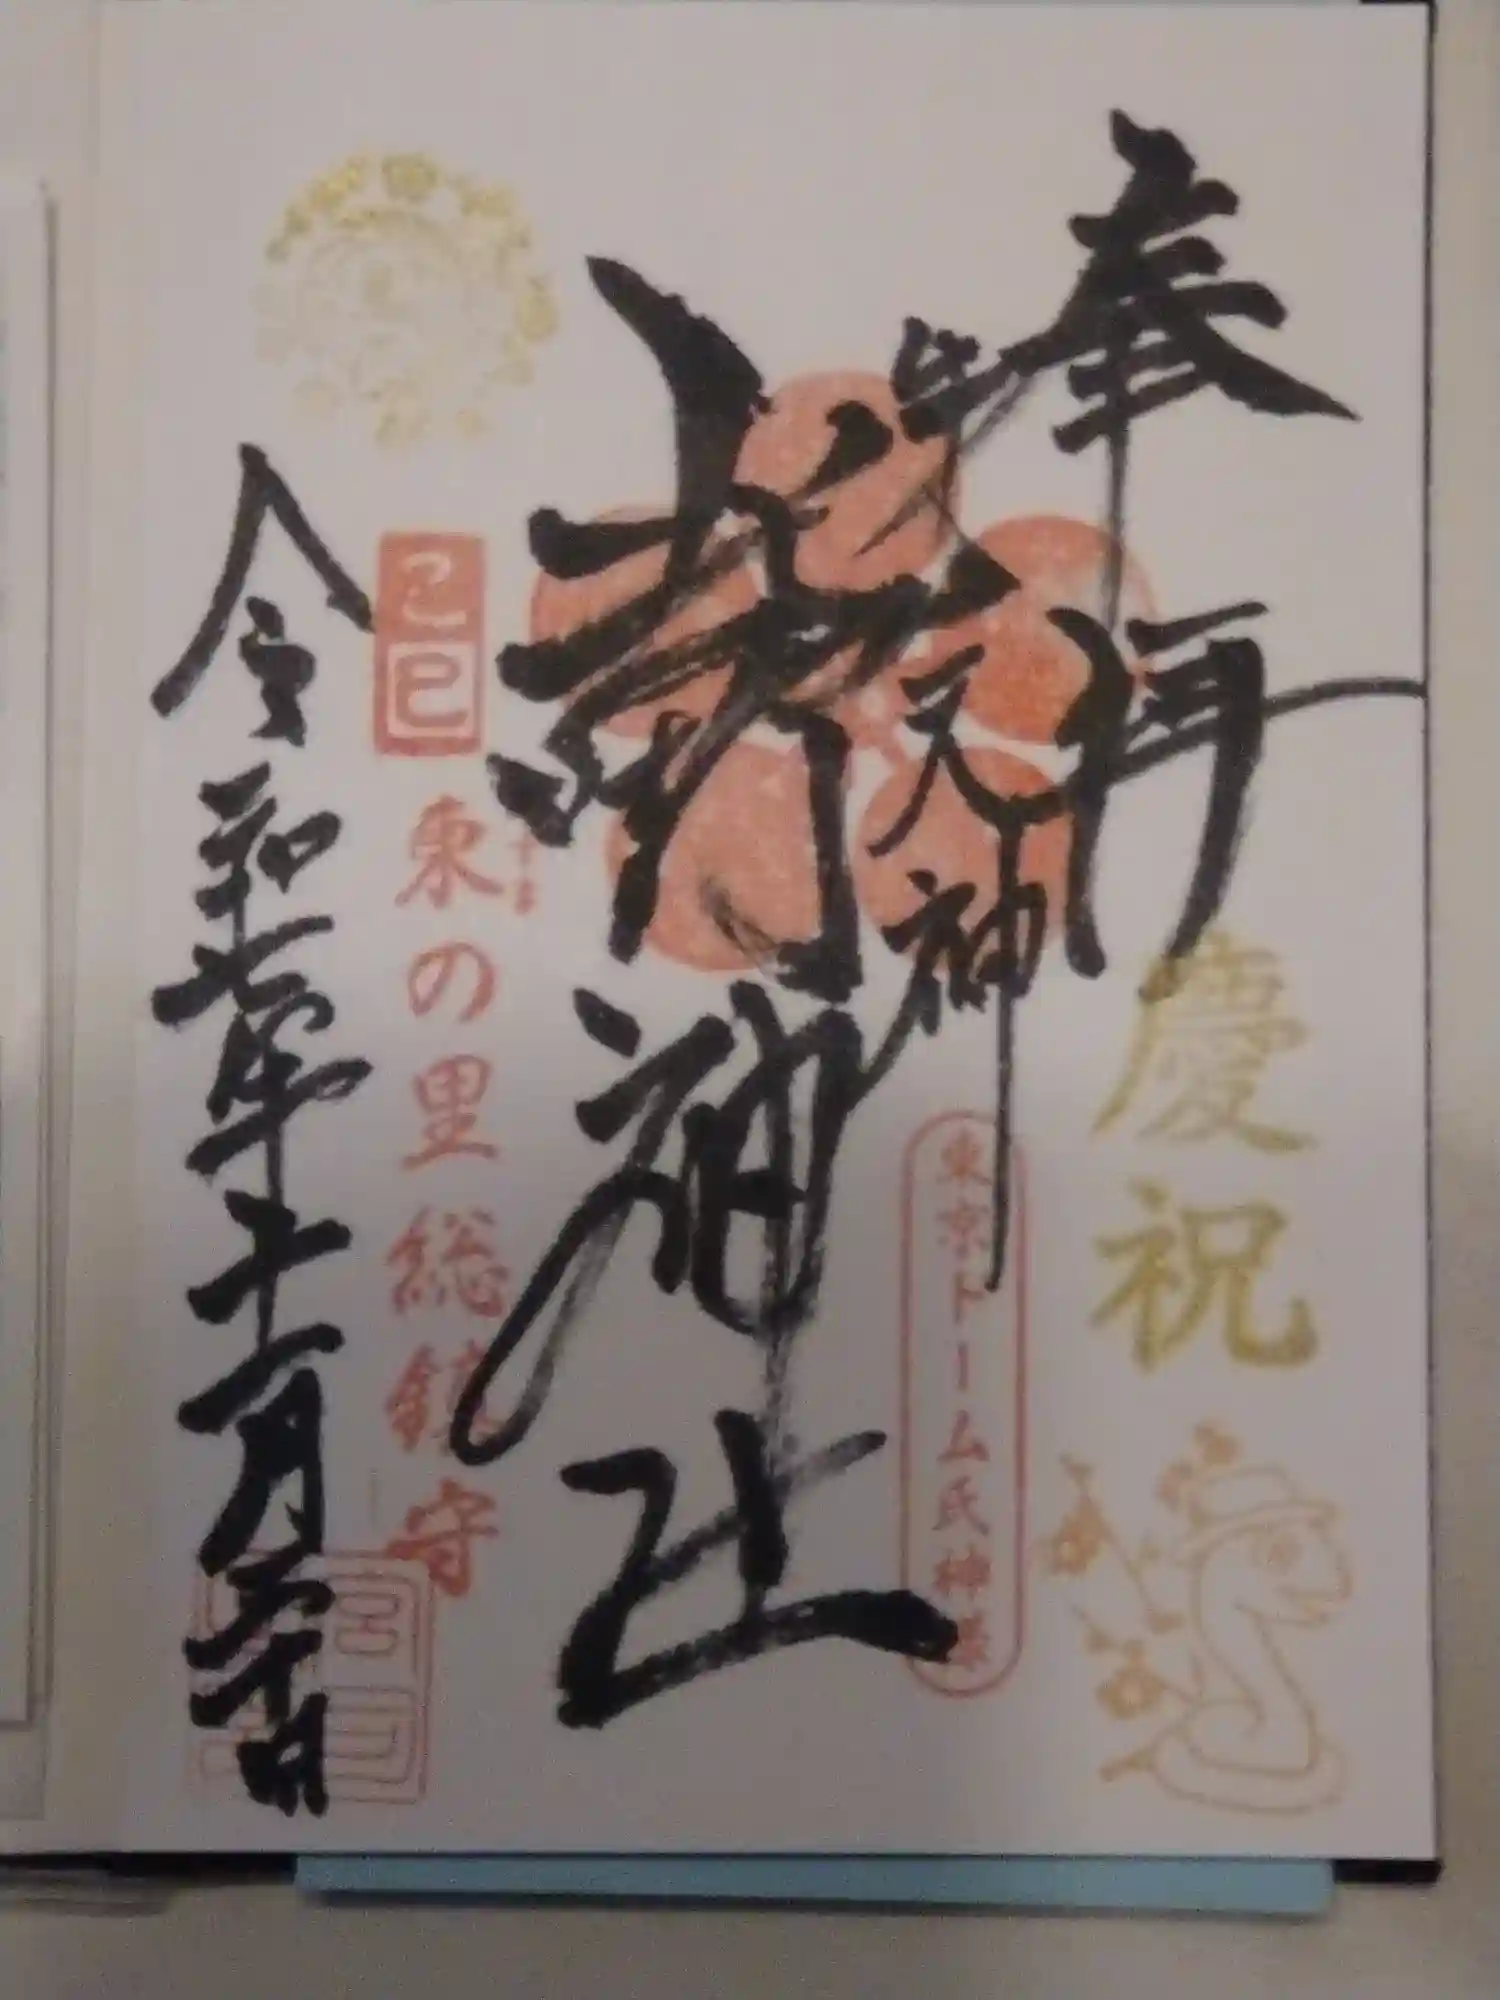 奉拝
慶祝
牛天神
東京ドーム氏神様
北野神社
巳
東の里総鎮守
令和七年